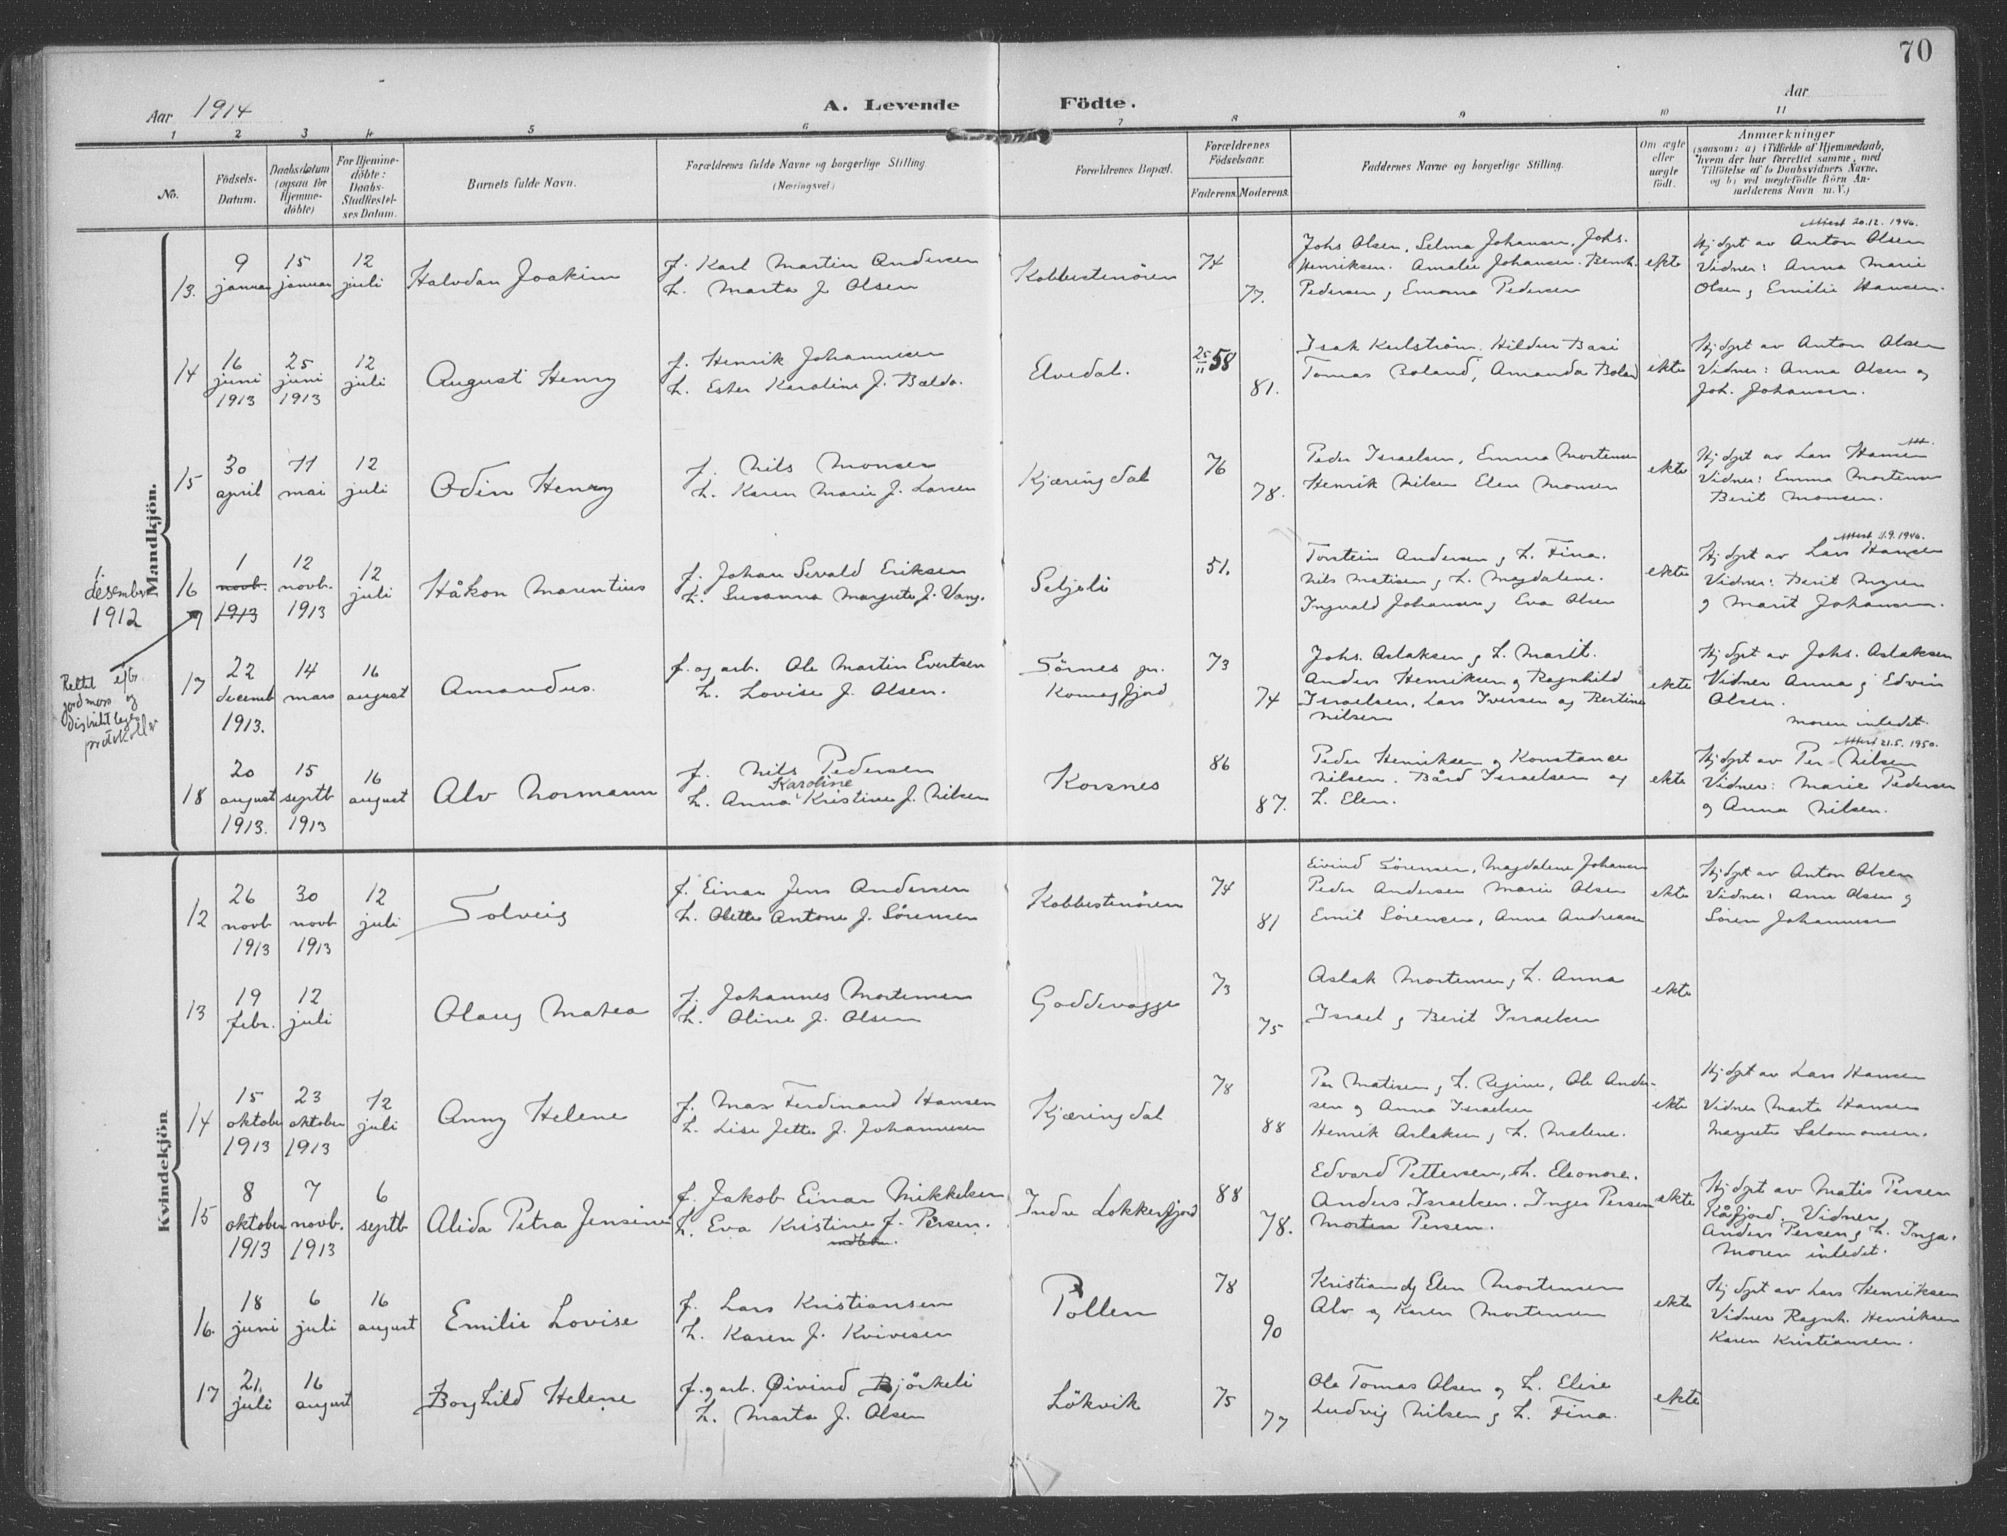 70
Aar 1914
A. Levende Födte.
Aar
1 2 3 4 5 6 7 8 9 10 11
No.
Födsels-Datum.
Daabsdatum (ogsaa for Hjemme-döbte)
For Hjemme-döbte: Daabs-Stadfestel-ses Datum.
Barnets fulde Navn.
Forældrenes fulde Navne og borgerlige Stilling. (Næringsvei)
Forældrenes Bopæl.
Forældrenes Födselsaar.
Faderens. Moderens.
Faddernes Navne og borgerlige Stilling.
Om ægte eller uægte födt.
Anmærkninger
(saasom: a) i Tilfælde af Hjemmedaab, hvem der har forrettet samme, med Tilföielse af to Daabsvidners Navne, og b) ved uægtefödte Börn An-melderens Navn m. V.)
Mandkjön.
13. 9 januar 15 januar 12 juli
Halvdan Joakim
f. Karl Martin Andersen
h. Marta f. Olsen
Kobbestenören
74 77.
Johs Olsen, Selma Johansen, Johs.
Henriksen. Amalie Johansen. Bernh.
Pedersen og Emma Pedersen
ekte
Attest 20.12.1946.
Hj døpt av Anton Olsen
Vidner: Anna Marie
Olsen og Emilie Hansen.
14 16 juni 1913 25 juni 1913 12 juli
August Henry
f. Henrik Johannesen
h. Ester Karoline f. Baldo.
Elvedal.
25/11 58 81.
Isak Kerlström. Hildur Basi
Tomas Boland, Amanda Boland
ekte
Hj døpt av Anton Olsen
Vidner: Anna Olsen og
Joh. Johansen.
15 30 april 11 mai 12 juli
Odin Henry
f. Nils Monsen
h. Karen Marie f. Larsen
Kjæringdal
76 78.
Peder Israelsen, Emma Mortensen
Henrik Nilsen Elen Monsen
ekte
Att.
Hj døpt av Lars Hansen
Vidner: Emma Mortensen
Berit Monsen.
1. desember 1912
16 1 novb. 1913 12 novb. 1913 12 juli
Håkon Marentius
f. Johan Sevald Eriksen
h. Susanna Margrete f. Vang.
Seljeli
51.
Torstein Andersen og h. Fina.
Nils Matisen og h. Magdalene.
Ingvald Johansen og Eva Olsen
ekte
Attest 11.9.1946.
Hj døpt av Lars Hansen
Vidner: Berit Myrin
og Marit Johansen.
Rettet efter jordmors og distriktleges protokoller
17 22 decemb 1913. 14 mars 16 august
Amandus.
f. og arb. Ole Martin Evertsen
h. Lovise f. Olsen.
Sörnes pr. Komagfjord
73 74
Johs. Aslaksen og h. Marit.
Anders Henriksen og Ragnhild
Israelsen, Lars Iversen og Bertine
Nilsen
ekte
Hj døpt av Johs. Aslaksen
Vidner Anna og Edvin
Olsen.
Moren inledet.
18 20 august 1913. 15 septb 1913 16 august
Alv Normann
f. Nils Pedersen
h. Anna Karoline Kristine f. Nilsen
Korsnes
86 87.
Peder Henriksen og Konstanse
Nilsen. Bård Israelsen og
h. Elen.
ekte
Attest 21.5.1950.
Hj døpt av Per Nilsen
Vidner: Marie Pedersen
og Anna Nilsen.
Kvindekjön
12 26 novb 1913 30 novb 1913 12 juli
Solveig
f. Einar Jens Andersen
h. Olette Antone f. Sörensen
Kobbestenören
74 81
Eivind Sörensen, Magdalene Johansen
Peder Andersen Marie Olsen
Emil Sörensen, Anna Andreassen
ekte
Hj døpt av Anton Olsen
Vidner: Anna Olsen og
Sören Johannesen
13 19 febr. 12 juli
Olaug Matea
f. Johannes Mortensen
h. Oline f. Olsen
Goddevagge
73 75
Aslak Mortensen og h. Anna
Israel og Berit Israelsen
ekte
14 15 oktober 1913 23 oktober 1913 12 juli
Anny Helene
f. Max Ferdinand Hansen
h. Lise Jette f. Johannesen
Kjæringdal
78 88
Per Matisen og h. Regine, Ole Ander-
sen og Anna Israelsen
Henrik Aslaksen og h. Malene.
ekte
Hj døpt av Lars Hansen
Vidner Marta Hansen
Margrete Salomonsen.
15 8 oktober 1913 7 novb. 1913 6 septb
Alida Petra Jensine
f. Jakob Einar Mikkelsen
h. Eva Kristine f. Persen.
Indre Lokkerfjord
88 78.
Edvard Pettersen, h. Eleonore.
Anders Israelsen. Inger Persen
Morten Persen.
ekte
Hj døpt av Matis Persen
Kåfjord. Vidner
Anders Persen og h. Inga.
Moren inledet.
16. 18 juni 6 juli 16 august
Emilie Lovise
f. Lars Kristiansen
h. Karen f. Kvivesen
Pollen
78 90
Kristian og Elen Mortensen
Alv og Karen Mortensen
ekte
Hj døpt av Lars Henriksen
Vidner Ragnh. Henriksen
Karen Kristiansen.
17 21. juli 16 august
Borghild Helene
f. og arb. Øivind Björkeli
h. Marta f. Olsen
Lökvik
75 77
Ole Tomas Olsen og h. Elise
Ludvig Nilsen og h. Fina.
ekte